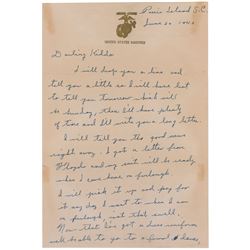 Paris Island S.C.
June 20 1942
UNITED STATES MARINES
Darling Hilda
I will drop you a line and
tell you a little as I will have lot
to tell you tomorrow which will
be Sunday, then I'll have plenty
of time and I'll write you a long letter.
I will tell you the good news
right away. I got a letter from
Floyds and my suit will be ready
when I come home on furlough.
I will pick it up and pay for
it any day I want to when I am
on furlough, isn't that swell.
Now that I've got a dress uniform
we'll be able to go to a formal dance,